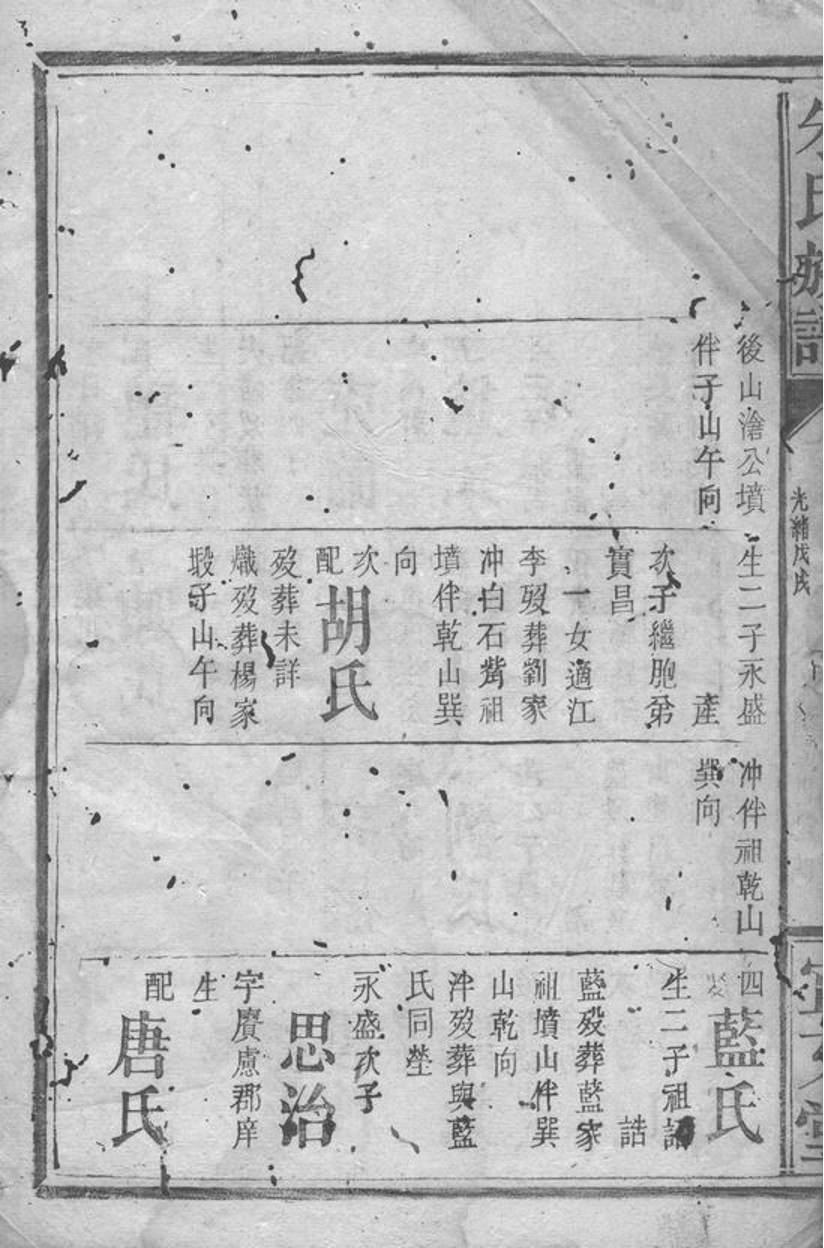 氏族譜
光緒戊戌
後山滄公墳
伴子山午向
生二子永盛
產
次子繼胞弟
實昌
一女適江
李歿葬劉家
冲白石觜祖
墳伴乾山巽
向
次
配胡氏
歿葬未詳
熾歿葬楊家
塅子山午向
冲伴祖乾山
巽向
四
藍氏
生二子祖詔
誥
藍歿葬藍家
祖墳山伴巽
山乾向
泮歿葬與藍
氏同塋
永盛次子
思治
字賡慮郡庠
生
配唐氏